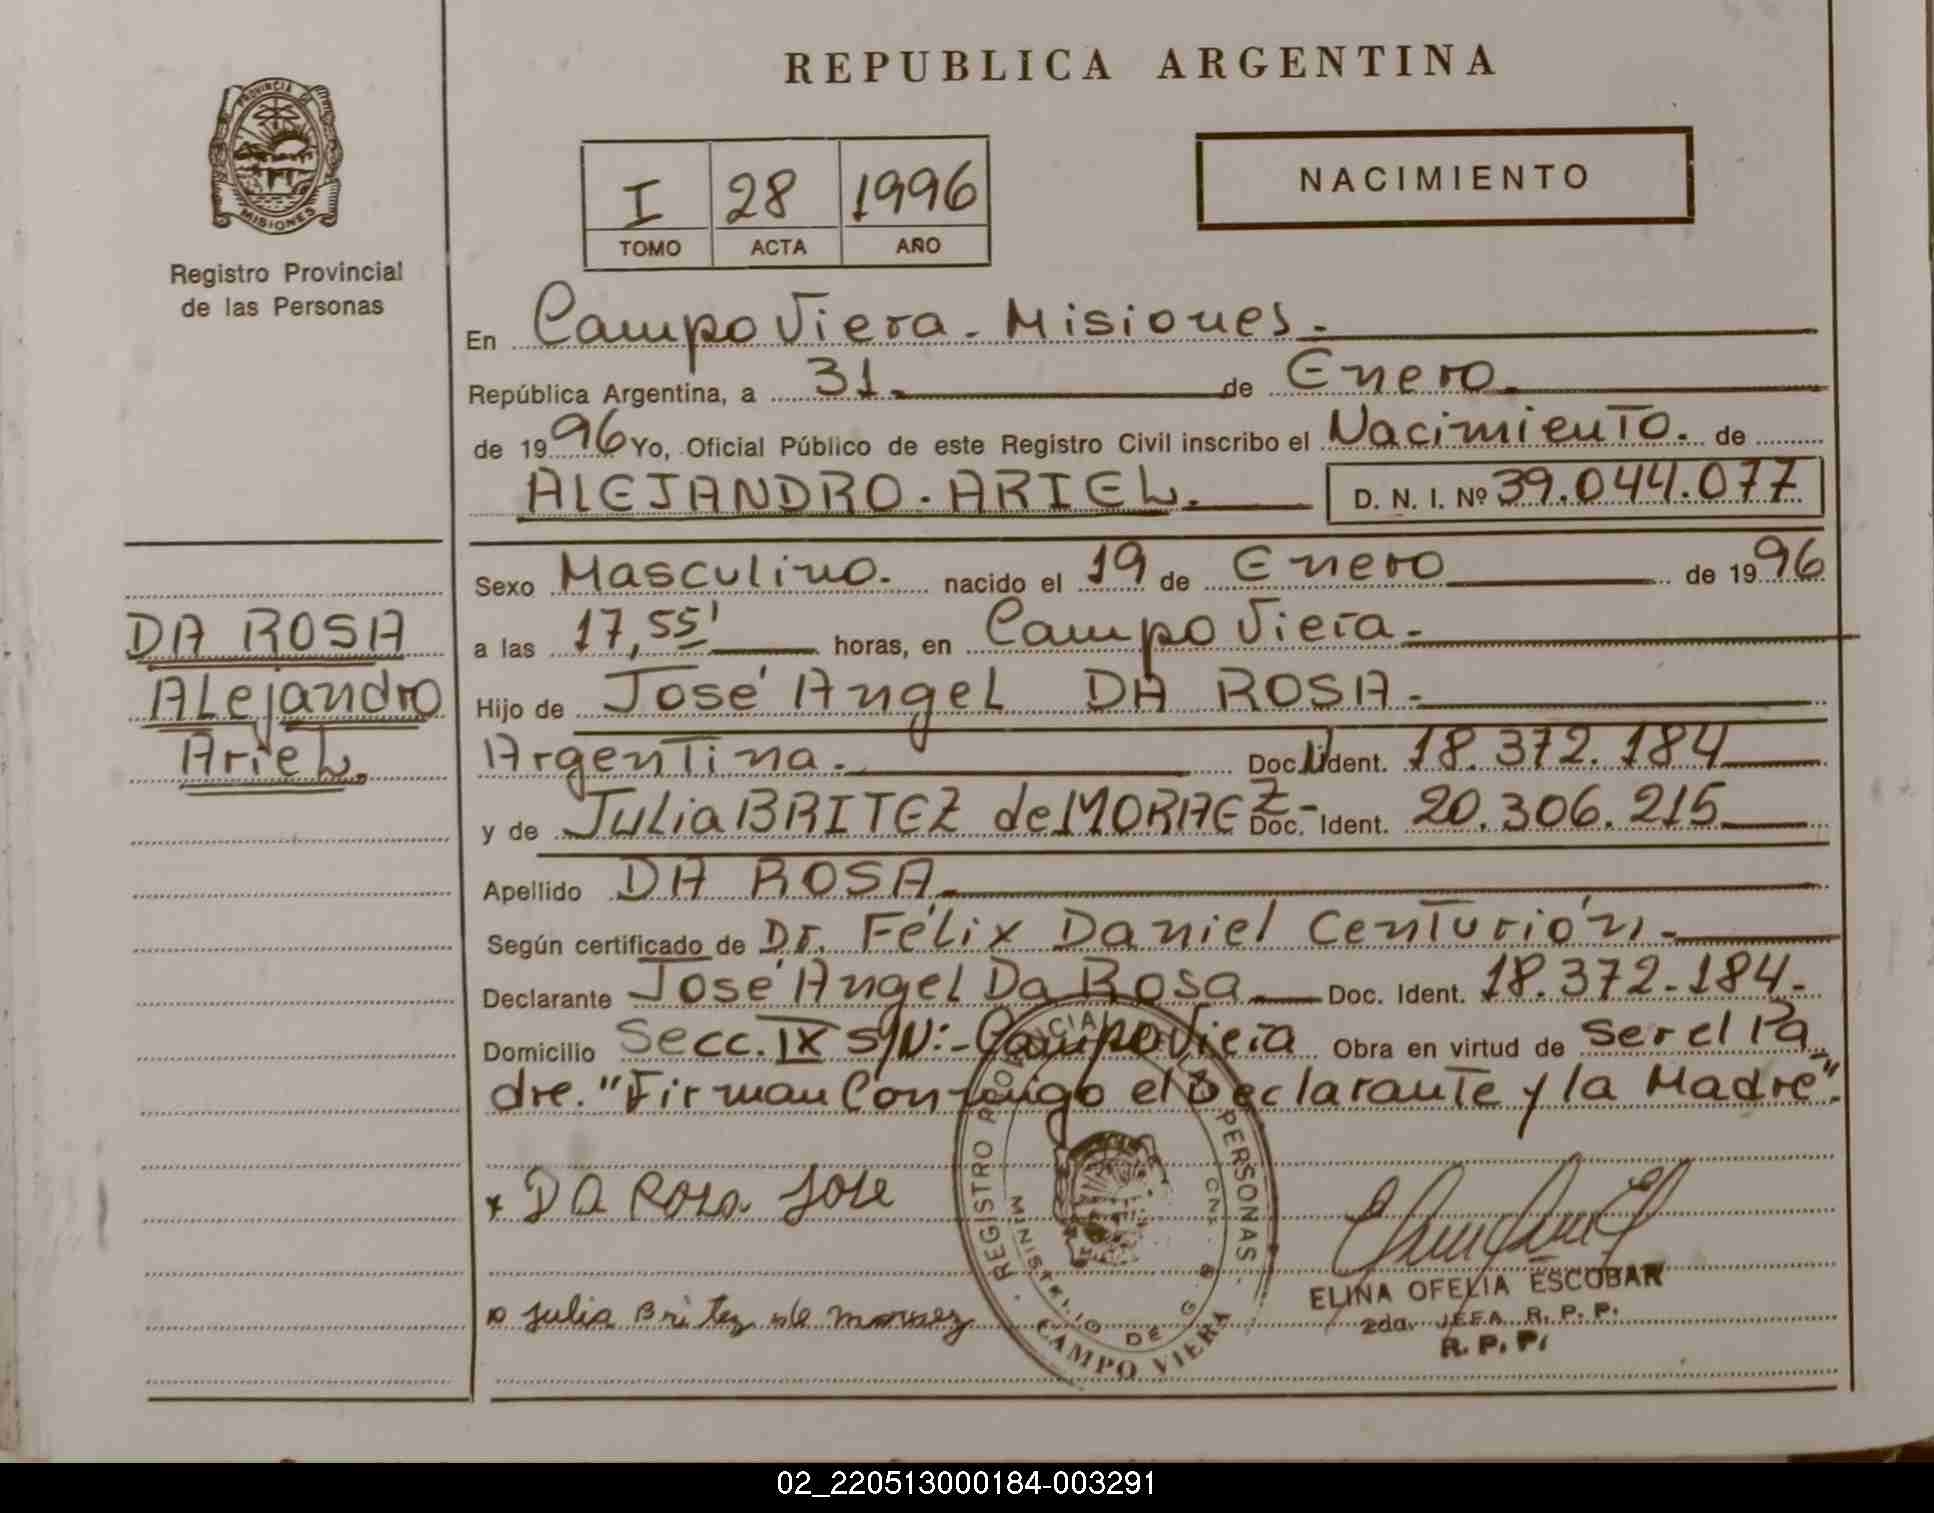 REPUBLICA ARGENTINA
PROVINCIA DE
MISIONES
Registro Provincial
de las Personas
I 28 1996
TOMO ACTA AÑO
NACIMIENTO
En Campo Viera - Misiones.-
República Argentina, a 31 de Enero.
de 1996 Yo, Oficial Público de este Registro Civil inscribo el Nacimiento. de
ALEJANDRO. ARIEL. D. N. I. Nº 39.044.077
DA ROSA
Alejandro
Ariel.
Sexo Masculino. nacido el 19 de Enero de 1996
a las 17,55' horas, en Campo Viera.-
Hijo de José Angel DA ROSA.-
Argentina. Doc. Ident. 18.372.184
y de Julia BRITEZ de MORAEZ- Doc. Ident. 20.306.215
Apellido DA ROSA
Según certificado de Dr. Félix Daniel Centurión.-
Declarante José Angel Da Rosa Doc. Ident. 18.372.184.
Domicilio Secc. IX S/N:- Campo Viera Obra en virtud de ser el Pa
dre. "Firman Conmigo el Declarante y la Madre".
x DA Rosa Jose
Julia Britez de moraez
REGISTRO PROVINCIAL PERSONAS
MINISTERIO DE G.
CAMPO VIERA
ELINA OFELIA ESCOBAR
2da. JEFA R. P. P.
R. P. P.
02_220513000184-003291